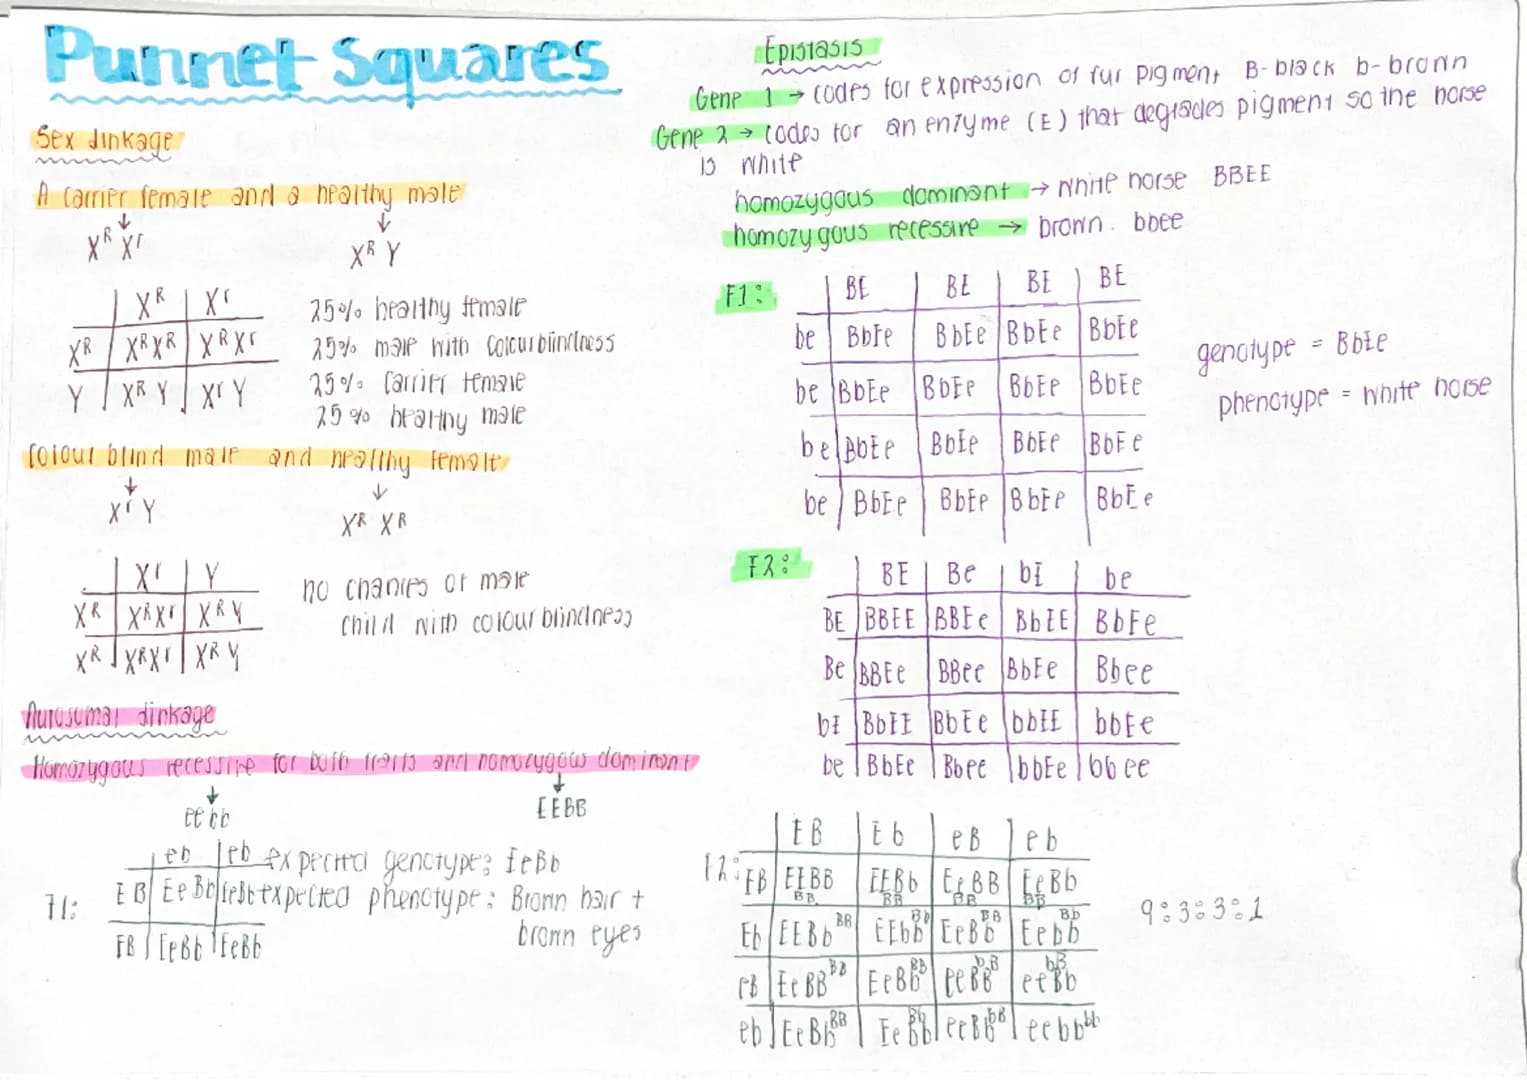 Punnet Squares
Sex linkage
A carrier female and a healthy male
X^R X^r X^R Y
X^R X^r
X^R X^R X^R X^R X^r
Y X^R Y X^r Y
25% healthy female
25% male with colourblindness
25% carrier female
25% healthy male
colour blind male and healthy female
X^r Y X^R X^R
X^r Y
X^R X^R X^r X^R Y
X^R X^R X^r X^R Y
no chances of male
child with colour blindness
Autosomal linkage
Homozygous recessive for both traits and homozygous dominant
eebb EEBB
eb eb
F1: EB EeBb EeBb
EB EeBb EeBb
expected genotype: EeBb
expected phenotype: Brown hair +
brown eyes
Epistasis
Gene 1 → codes for expression of fur pigment B-black b-brown
Gene 2 → codes for an enzyme (E) that degrades pigment so the horse
is white
homozygous dominant → white horse BBEE
homozygous recessive → brown. bbee
F1:
BE BE BE BE
be BbEe BbEe BbEe BbEe
be BbEe BbEe BbEe BbEe
be BbEe BbEe BbEe BbEe
be BbEe BbEe BbEe BbEe
genotype = BbEe
phenotype = white horse
F2:
BE Be bE be
BE BBEE BBEe BbEE BbEe
Be BBEe BBee BbEe Bbee
bE BbEE BbEe bbEE bbEe
be BbEe Bbee bbEe bbee
EB Eb eB eb
F2: EB EEBB EEBb EeBB EeBb
BB BB BB BB
Eb EEBb BB EEbb Bb EeBb BB Eebb Bb
eB EeBB BB EeBb BB eeBB bB eeBb bB
eb EeBb BB EeBb Bb eeBb bB eebb bb
9:3:3:1